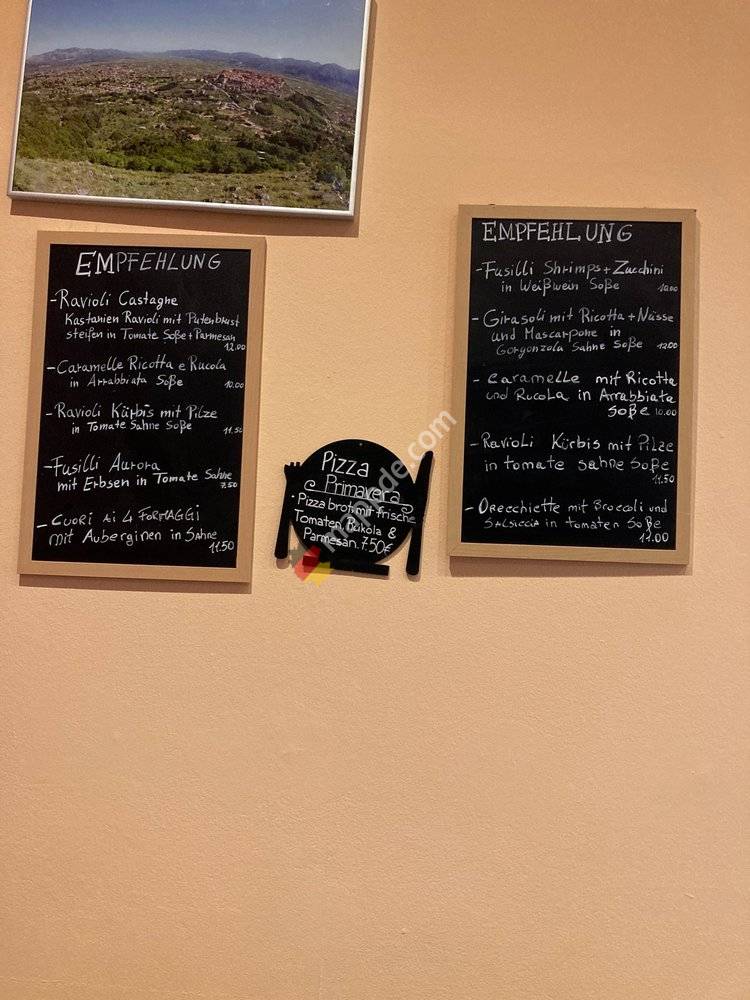 EMPFEHLUNG
- Ravioli Castagne
Kastanien Ravioli mit Putenbrust
steifen in Tomate Soße + Parmesan
12.00
- Caramelle Ricotta e Rucola
in Arrabbiata Soße 10.00
- Ravioli Kürbis mit Pilze
in Tomate Sahne Soße 11.50
- Fusilli Aurora
mit Erbsen in Tomate Sahne
7.50
- Cuori ai 4 Formaggi
mit Auberginen in Sahne
11.50
Pizza
Primavera
• Pizza brot mit frische
Tomaten, Rukola &
Parmesan. 7.50€
mapade.com
EMPFEHLUNG
- Fusilli Shrimps + Zucchini
in Weißwein Soße
- Girasoli mit Ricotta + Nüsse
und Mascarpone in
Gorgonzola Sahne Soße 12.00
- Caramelle mit Ricotta
und Rucola in Arrabbiata
Soße 10.00
- Ravioli Kürbis mit Pilze
in tomate sahne Soße
11.50
- Orecchiette mit Broccoli und
Salsiccia in tomaten Soße
11.00